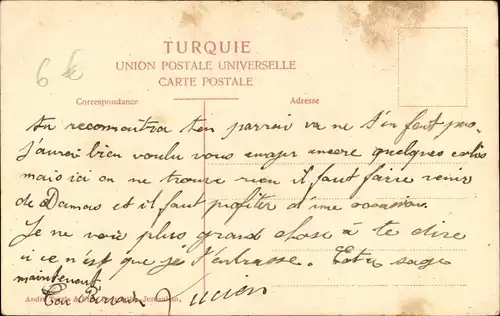 6 €
TURQUIE
UNION POSTALE UNIVERSELLE
CARTE POSTALE
Correspondance
Adresse
tu reconnaitra ton parrai va ne t'en fait pas.
J'aurai bien voulu vous envoyer encore quelques colis
mais ici on ne trouve rien il faut faire venir
de Damas et il faut profiter d'une occasion.
Je ne voie plus grand chose à te dire
si ce n'est que je t'embrasse. Est tu sage
maintenant.
Ton Parrain Lucien
André Jerusalem.